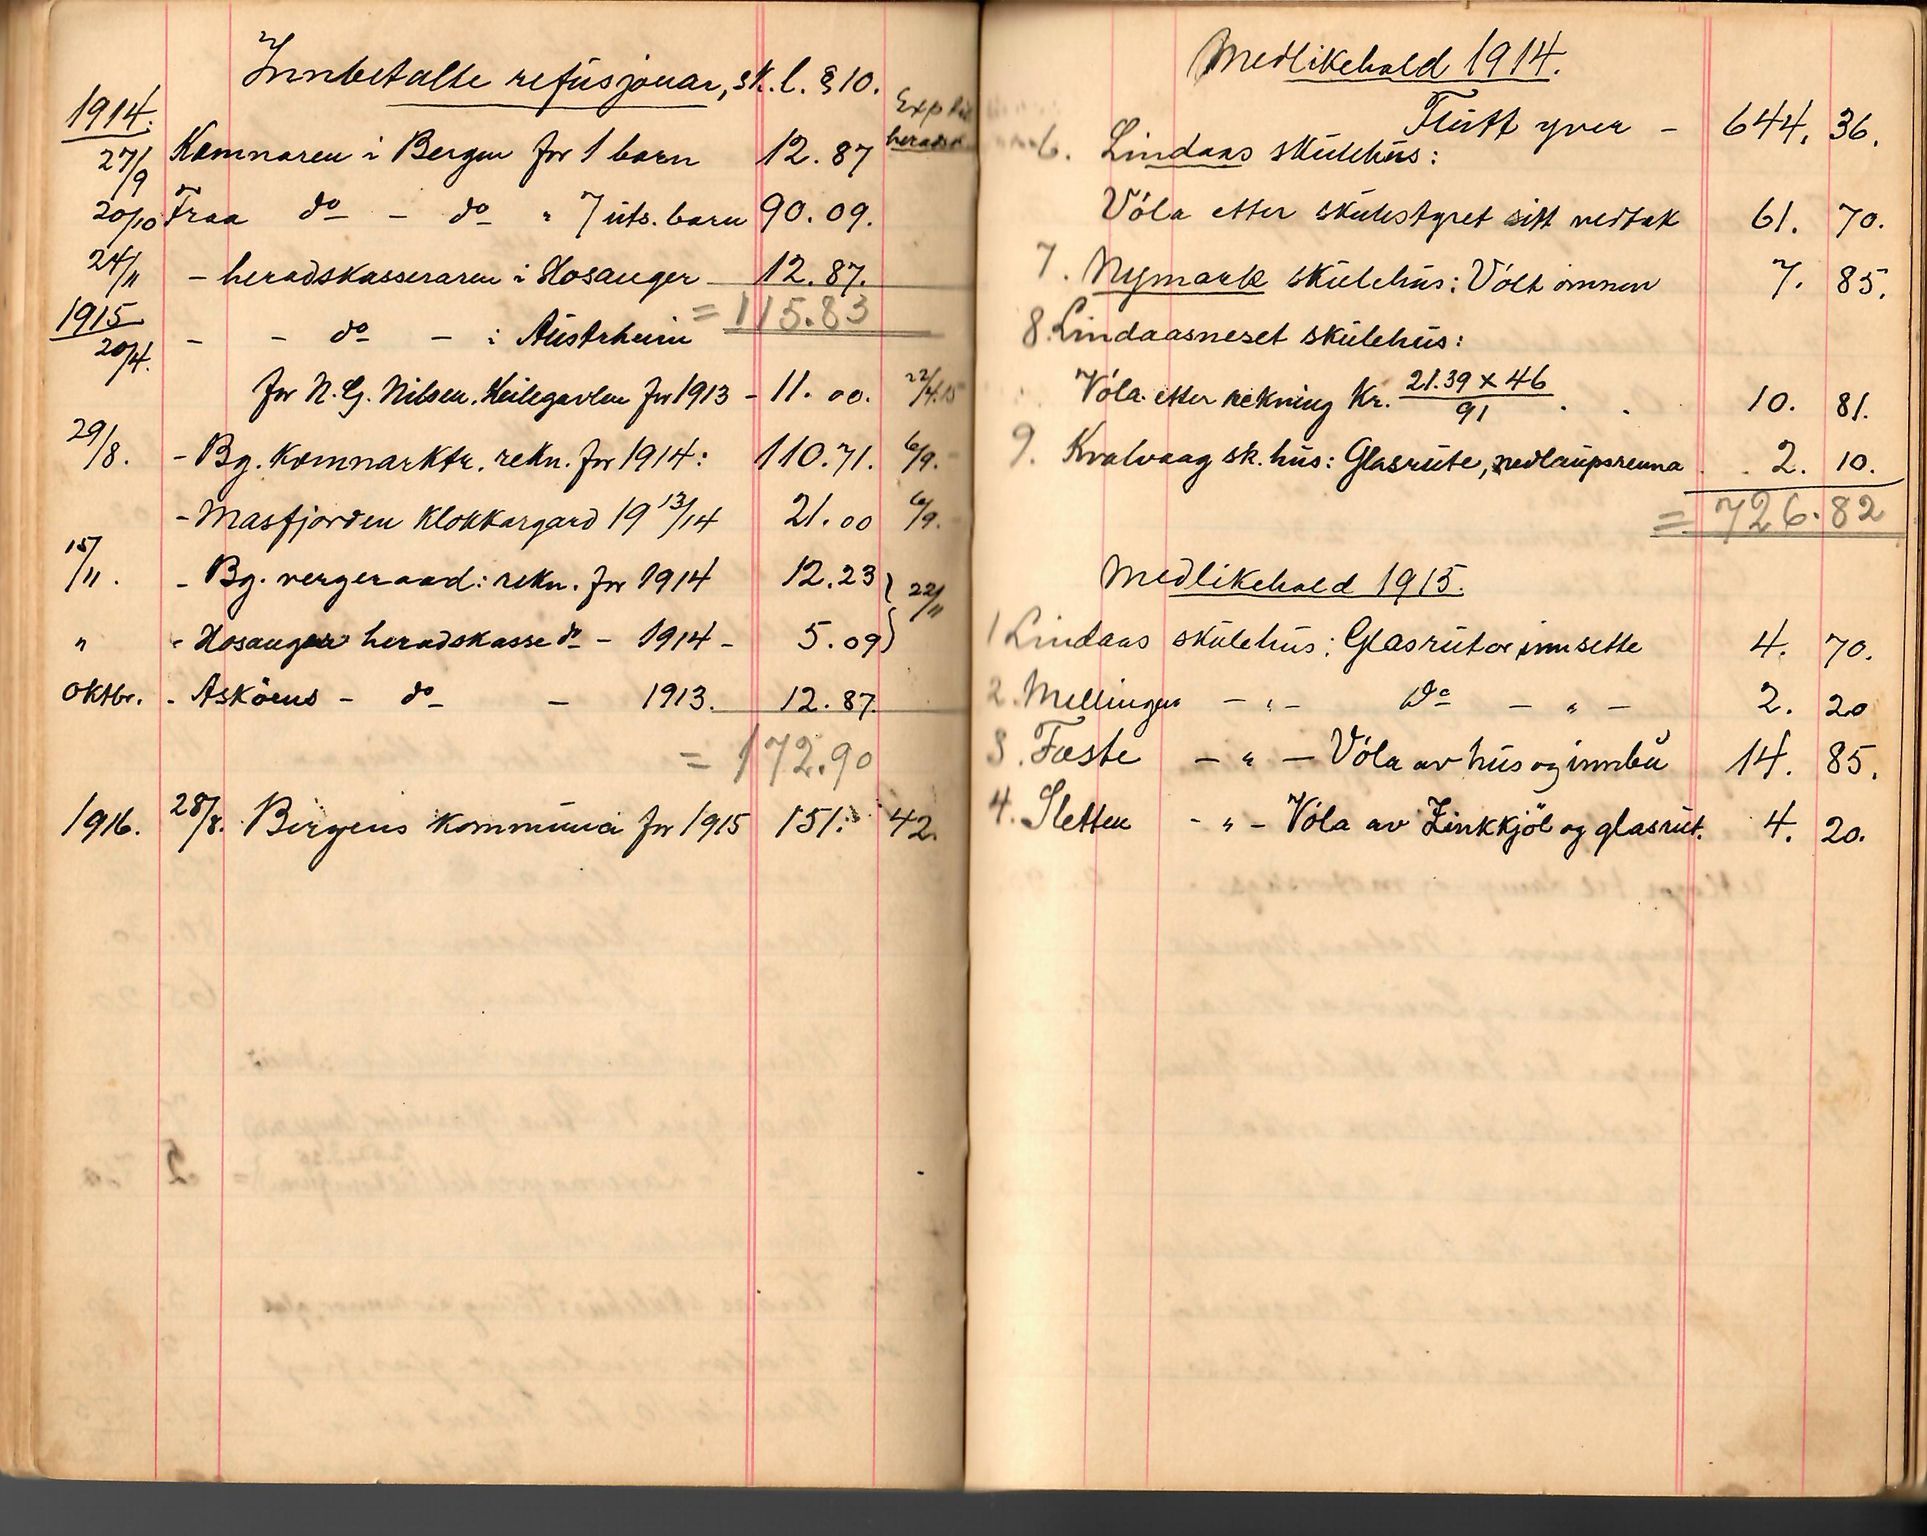 Innbetalte refusjonar, sk. l. § 10.
1914. Exp. til heradsk.
27/9 Kæmnaren i Bergen for 1 barn 12. 87
20/10 Fraa do – do " 7 uts. barn 90. 09.
24/11 – heradskasseraren i Hosanger 12. 87.
= 115.83
1915
20/4. – – do – i Austrheim
for N. G. Nilsen, Keilegavlen for 1913 – 11. 00. 22/4.15
29/8. – Bg. Kæmnarktr. rekn. for 1914: 110.71. 6/9.
– Masfjorden Klokkargard 19 13/14 21. 00 6/9.
15/11. – Bg. vergeraad: rekn. for 1914 12.23
22/11
" – Hosanger heradskasse do – 1914 – 5. 09
Oktbr. – Asköens – do – 1913. 12. 87.
= 172.90
1916. 28/8. Bergens kommuna for 1915 151. 42.
Medlikehald 1914.
Flutt yver – 644. 36.
6. Lindaas skulehus:
Vóla etter skulestyret sitt vedtak 61. 70.
7. Nymark skulehus: Vólt omnen 7. 85.
8. Lindaasneset skulehus:
Vóla etter rekning Kr. 21.39 x 46 / 91 . . 10. 81.
9. Kvalvaag sk. hus: Glasrute, nedlaupsrenna . 2. 10.
= 726.82
Medlikehald 1915.
1 Lindaas skulehus: Glasrutor innsette 4. 70.
2. Mellingen – " – Do – " – 2. 20
3. Fæste – " – Vóla av hus og innbu 14. 85.
4. Sletten – " – Vóla av Zinkkjöl og glasrut. 4. 20.